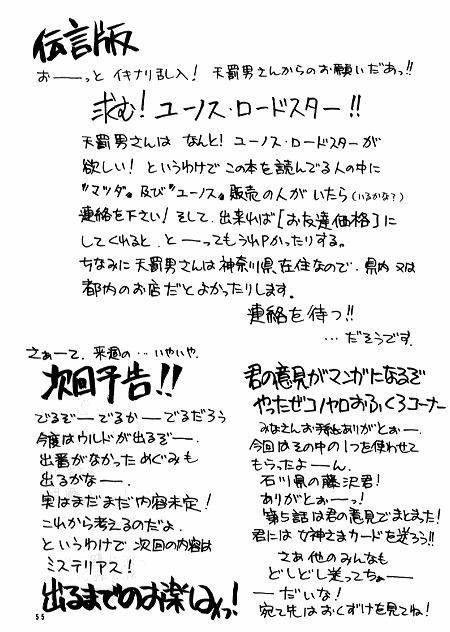 伝言版
おーーっと イキナリ乱入! 天罰男さんからのお願いだあっ!!
求む! ユーノス・ロードスター!!
天罰男さんは なんと! ユーノス・ロードスターが
欲しい! というわけで この本を読んでる人の中に
"マツダ"及び"ユーノス"販売の人がいたら(いるかな?)
連絡を下さい! そして、出来れば[お友達価格]に
してくれると、とーーってもうれPかったりする。
ちなみに天罰男さんは神奈川県在住なので、県内又は
都内のお店だとよかったりします。
連絡を待つ!!
…だそうです。
さぁーて、来週の…いやいや、
次回予告!!
でるぞーーでるかーーでるだろう
今度はウルドが出るぞー。
出番がなかっためぐみも
出るかなー。
実はまだまだ内容未定!
これから考えるのだよ、
というわけで 次回の内容は
ミステリアス!
出るまでのお楽しみっ!
君の意見がマンガになるぞ
やったぜコノヤロおふくろコーナー
みなさんお便りありがとぉー。
今回はその中の1つを使わせて
もらったよーん。
石川県の藤沢君!
ありがとぉーっ!
第5話は君の意見でまとまった!
君には女神さまカードを送ろう!!
さあ他のみんなも
どしどし送ってちょーー
ーーだいな!
宛て先はおくずけを見てね!
55